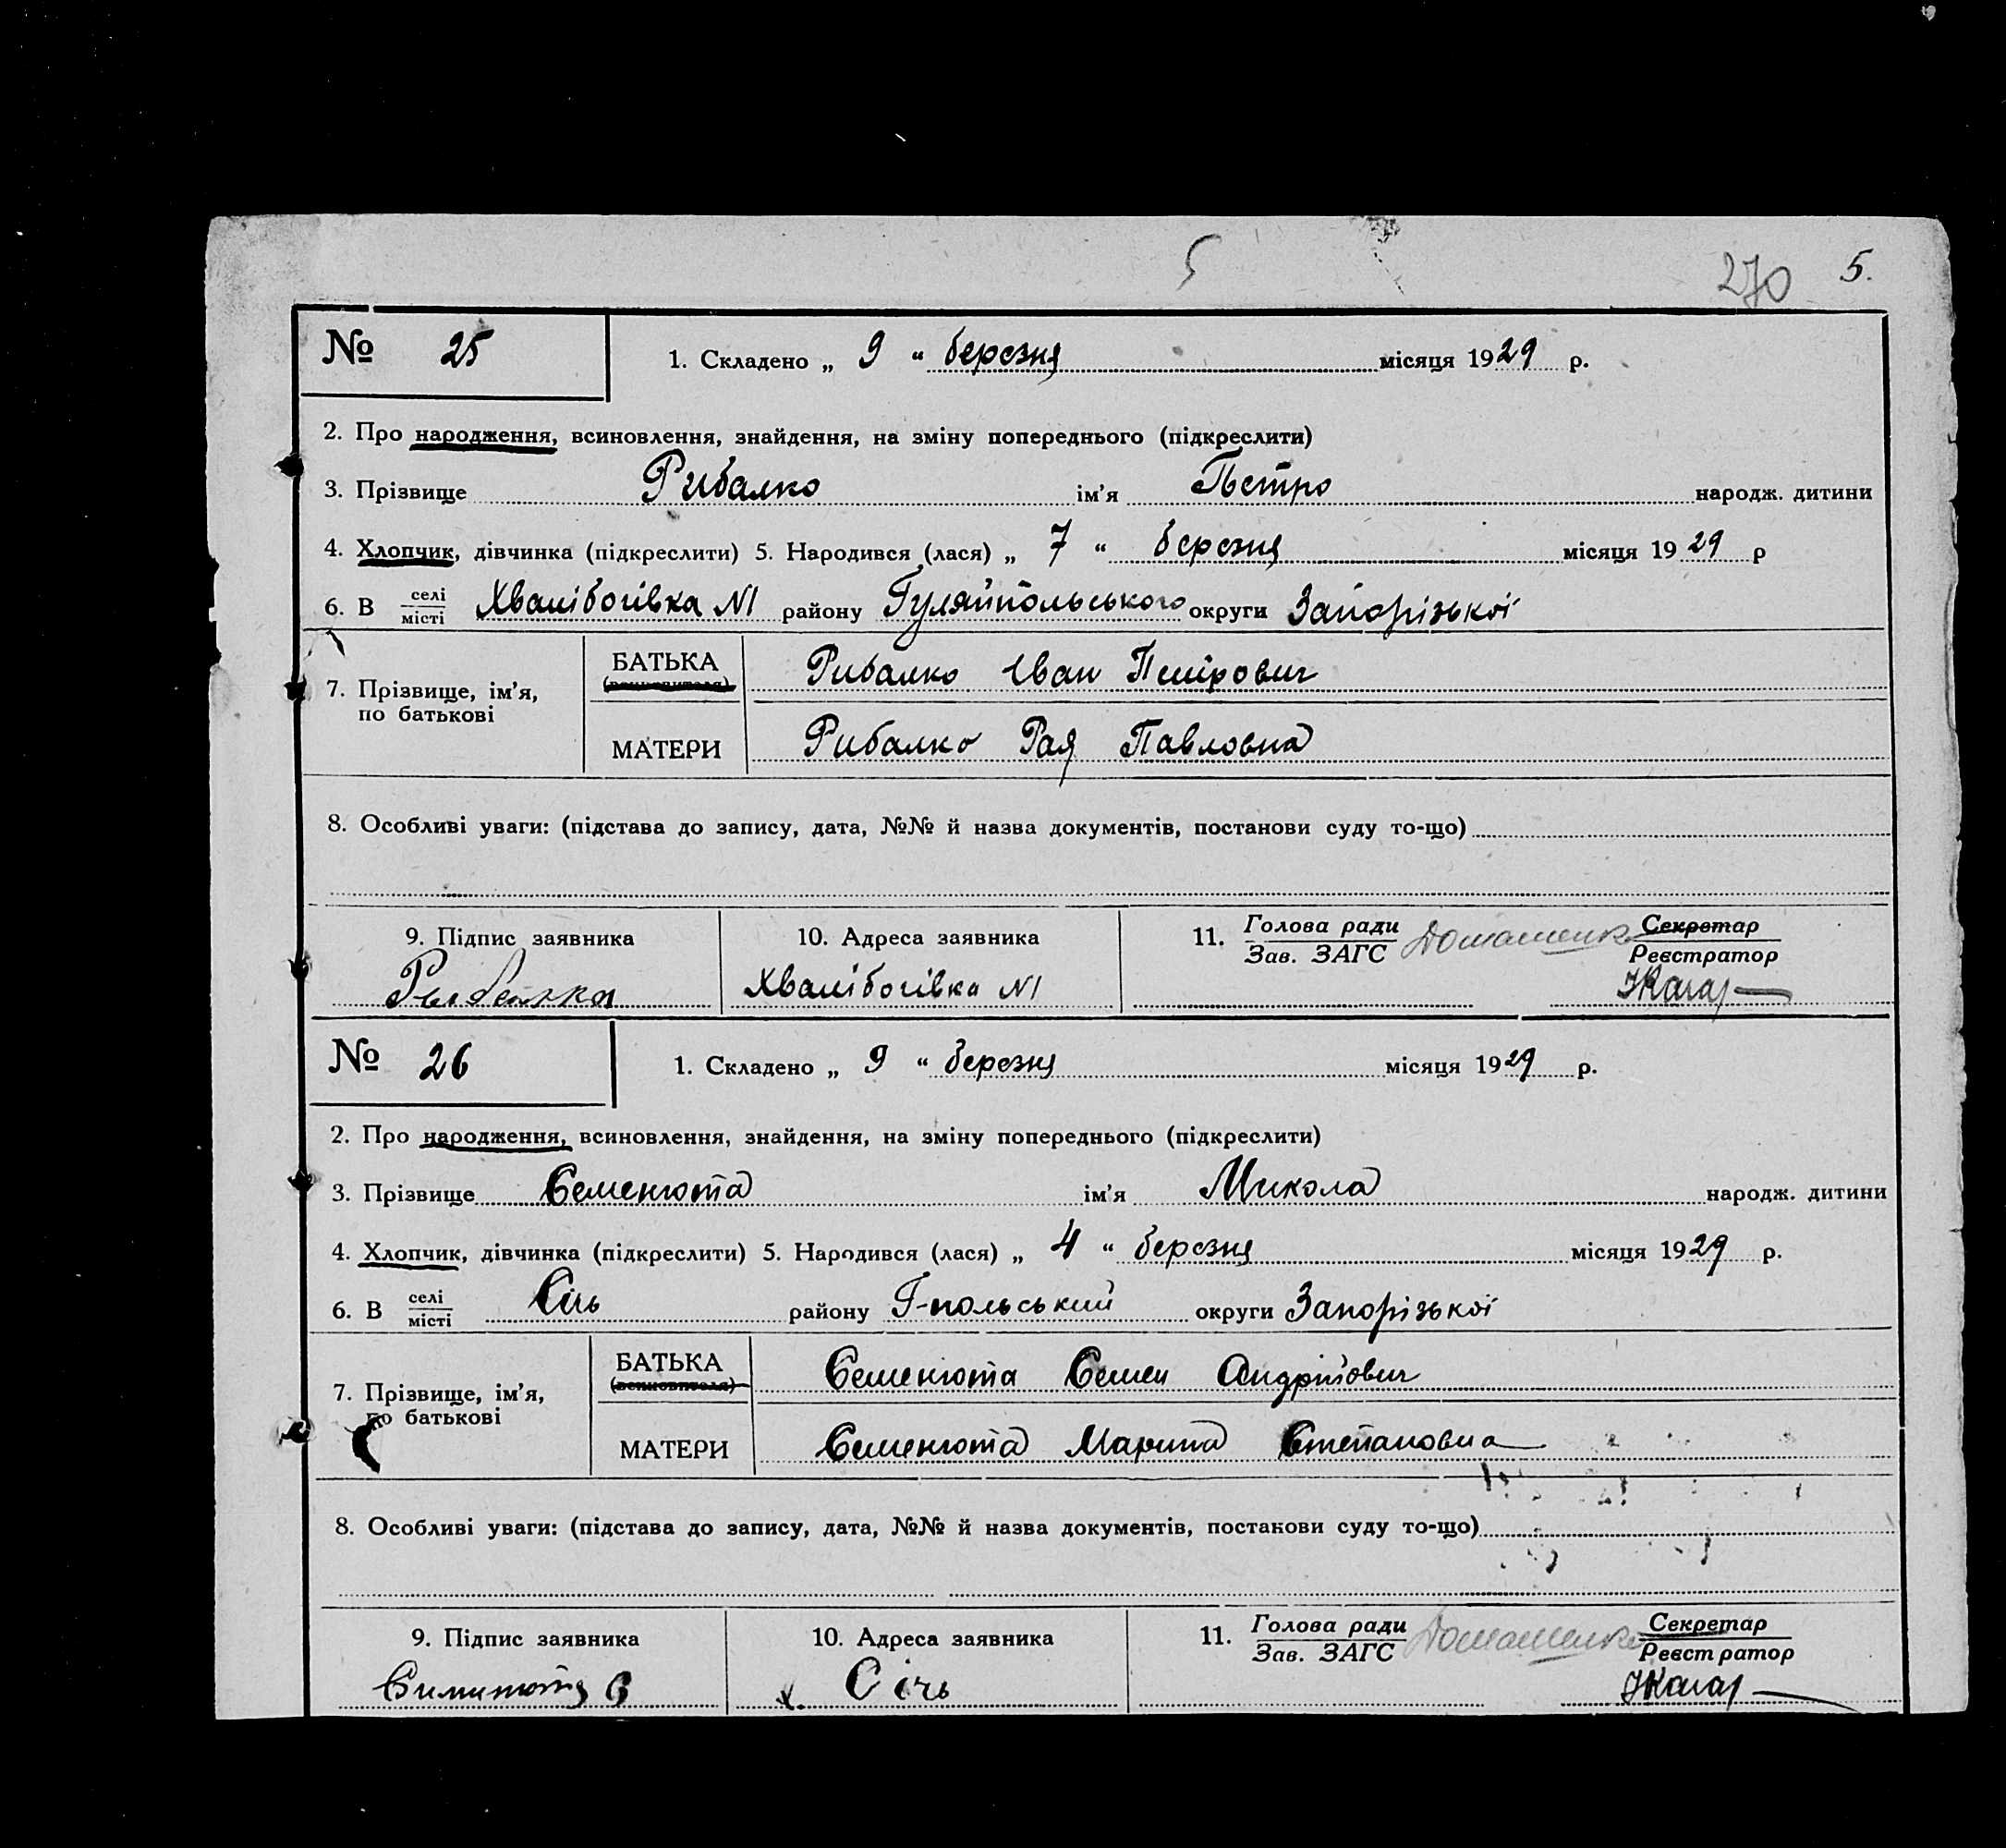 5
270 5.
№ 25 1. Складено „ 9 “ березня місяця 1929 р.
2. Про народження, всиновлення, знайдення, на зміну попереднього (підкреслити)
3. Прізвище Рибалко ім’я Петро народж. дитини
4. Хлопчик, дівчинка (підкреслити) 5. Народився (лася) „ 7 “ березня місяця 1929 р
6. В селі/місті Хвалібогівка N1 району Гуляйпольського округи Запорізької
7. Прізвище, ім’я, по батькові
БАТЬКА Рибалко Іван Петрович
МАТЕРИ Рибалко Рая Павловна
8. Особливі уваги: (підстава до запису, дата, №№ й назва документів, постанови суду то-що)
9. Підпис заявника 10. Адреса заявника 11. Голова ради Домашенко Секретар
Зав. ЗАГС Реєстратор
Хвалібогівка N1
№ 26 1. Складено „ 9 “ березня місяця 1929 р.
2. Про народження, всиновлення, знайдення, на зміну попереднього (підкреслити)
3. Прізвище Семенюта ім’я Микола народж. дитини
4. Хлопчик, дівчинка (підкреслити) 5. Народився (лася) „ 4 “ березня місяця 1929 р.
6. В селі/місті Січь району Г-польський округи Запорізької
7. Прізвище, ім’я, по батькові
БАТЬКА (всиновителя) Семенюта Семен Андрійович
МАТЕРИ Семенюта Марина Степановна
8. Особливі уваги: (підстава до запису, дата, №№ й назва документів, постанови суду то-що)
9. Підпис заявника 10. Адреса заявника 11. Голова ради Домашенко Секретар
Зав. ЗАГС Реєстратор
х. Січь